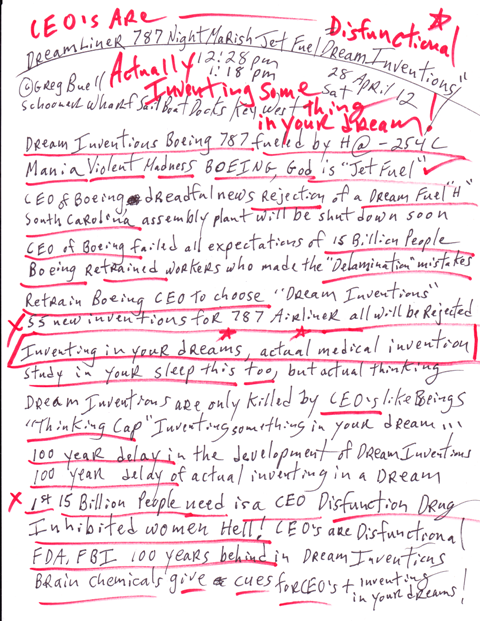 CEO's Are Disfunctional
DreamLiner 787 NightMarish Jet Fuel Dream Inventions"
Actually 12:28 pm 28 April 12
©Greg Buell 1:18 pm Sat
Inventing Some thing
Schooner Wharf Sail Boat Docks Key West
in your dream!
Dream Inventions Boeing 787 fueled by H @ -254 C
Mania Violent Madness BOEING, God is "Jet Fuel"
CEO of Boeing dreadful news Rejection of a Dream Fuel "H"
South Carolina assembly plant will be shut down soon
CEO of Boeing failed all expectations of 15 Billion People
Boeing Retrained workers who made the "Delamination" mistakes
Retrain Boeing CEO to choose "Dream Inventions"
X 53 new inventions for 787 Airliner all will be Rejected
Inventing in your dreams, actual medical invention
study in your sleep this too, but actual thinking
Dream Inventions are only killed by CEO's like Boeings
"Thinking Cap" Inventing something in your dream...
100 year delay in the development of Dream Inventions
100 year delay of actual inventing in a Dream
X 1st 15 Billion People need is a CEO Disfunction Drug
Inhibited women Hell! CEO's are Disfunctional
FDA, FBI 100 years behind in Dream Inventions
Brain chemicals give cues for CEO's + inventing
in your dreams!